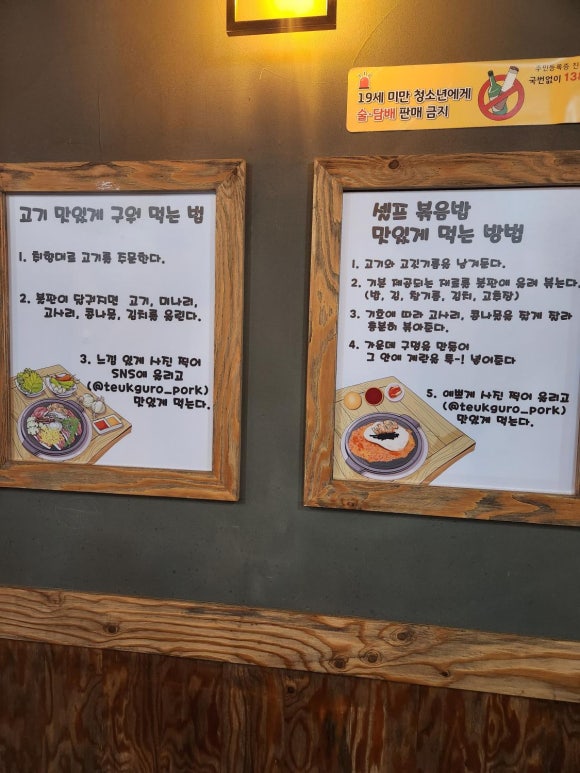 19세 미만 청소년에게
술·담배 판매 금지
주민등록증
국번없이 13
고기 맛있게 구워 먹는 법
1. 취향대로 고기를 주문한다.
2. 불판이 달궈지면 고기, 미나리,
고사리, 콩나물, 김치를 올린다.
3. 느낌 있게 사진 찍어
SNS에 올리고
(@teukguro_pork)
맛있게 먹는다.
셀프 볶음밥
맛있게 먹는 방법
1. 고기와 고깃기름을 남겨둔다.
2. 기본 제공되는 재료를 불판에 올려 볶는다.
(밥, 김, 참기름, 김치, 고추장)
3. 기호에 따라 고사리, 콩나물을 잘게 잘라
충분히 볶아준다.
4. 가운데 구멍을 만들어
그 안에 계란을 톡-! 넣어준다
5. 예쁘게 사진 찍어 올리고
(@teukguro_pork)
맛있게 먹는다.